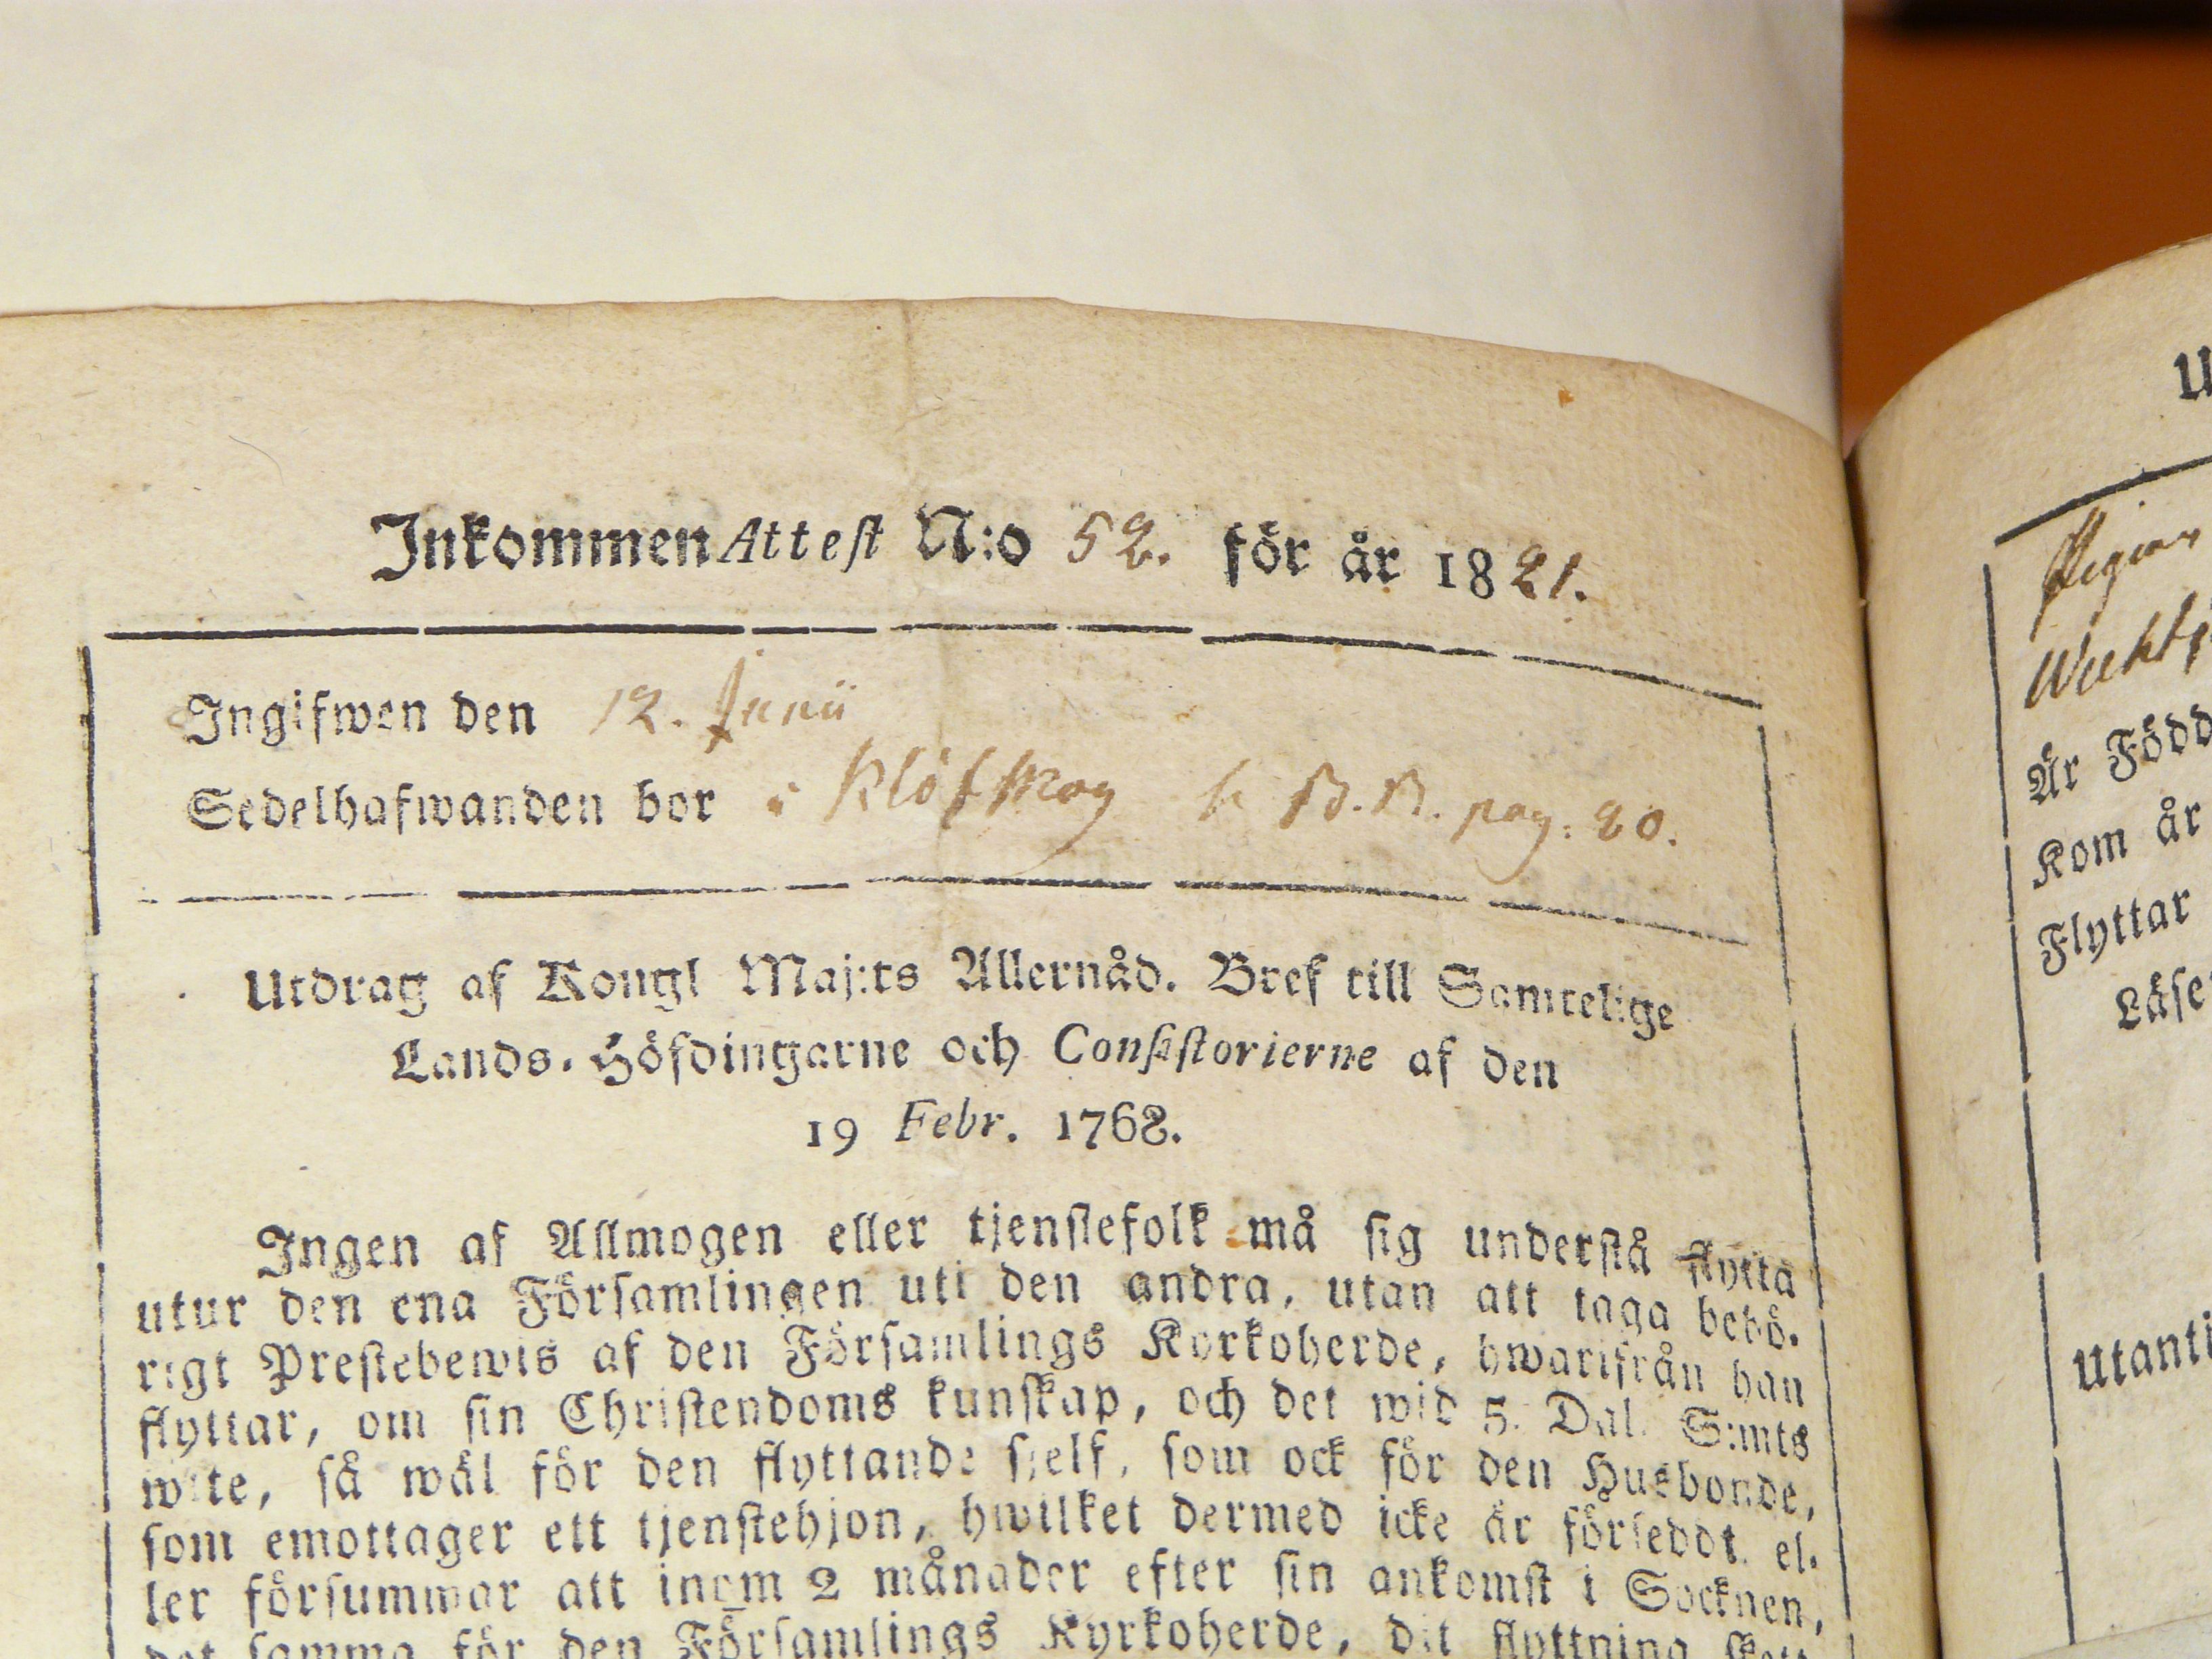 Inkommen Attest N:o 52. för år 1821.
Ingifwen den 12. Junii
Sedelhafwanden bor i Klöfskog B. pag: 20.
Utdrag af Kongl Maj:ts Allernåd. Bref till Samtelige
Lands-Höfdingarne och Consistorierne af den
19 Febr. 1768.
Ingen af Allmogen eller tjenstefolk må sig understå flytta
utur den ena Församlingen uti den andra, utan att taga behö-
rigt Prestebewis af den Församlings Kyrkoherde, hwarifrån han
flyttar, om sin Christendoms kunskap, och det wid 5. Dal. S:mts
wite, så wäl för den flyttande sjelf, som ock för den Husbonde,
som emottager ett tjenstehjon, hwilket dermed icke är förseddt, el-
ler försummar att inom 2 månader efter sin ankomst i Socknen,
det samma för den Församlings Kyrkoherde, dit flyttning skett
U
Pigan
Är Född
Kom år
Flyttar
Läse
Utanti